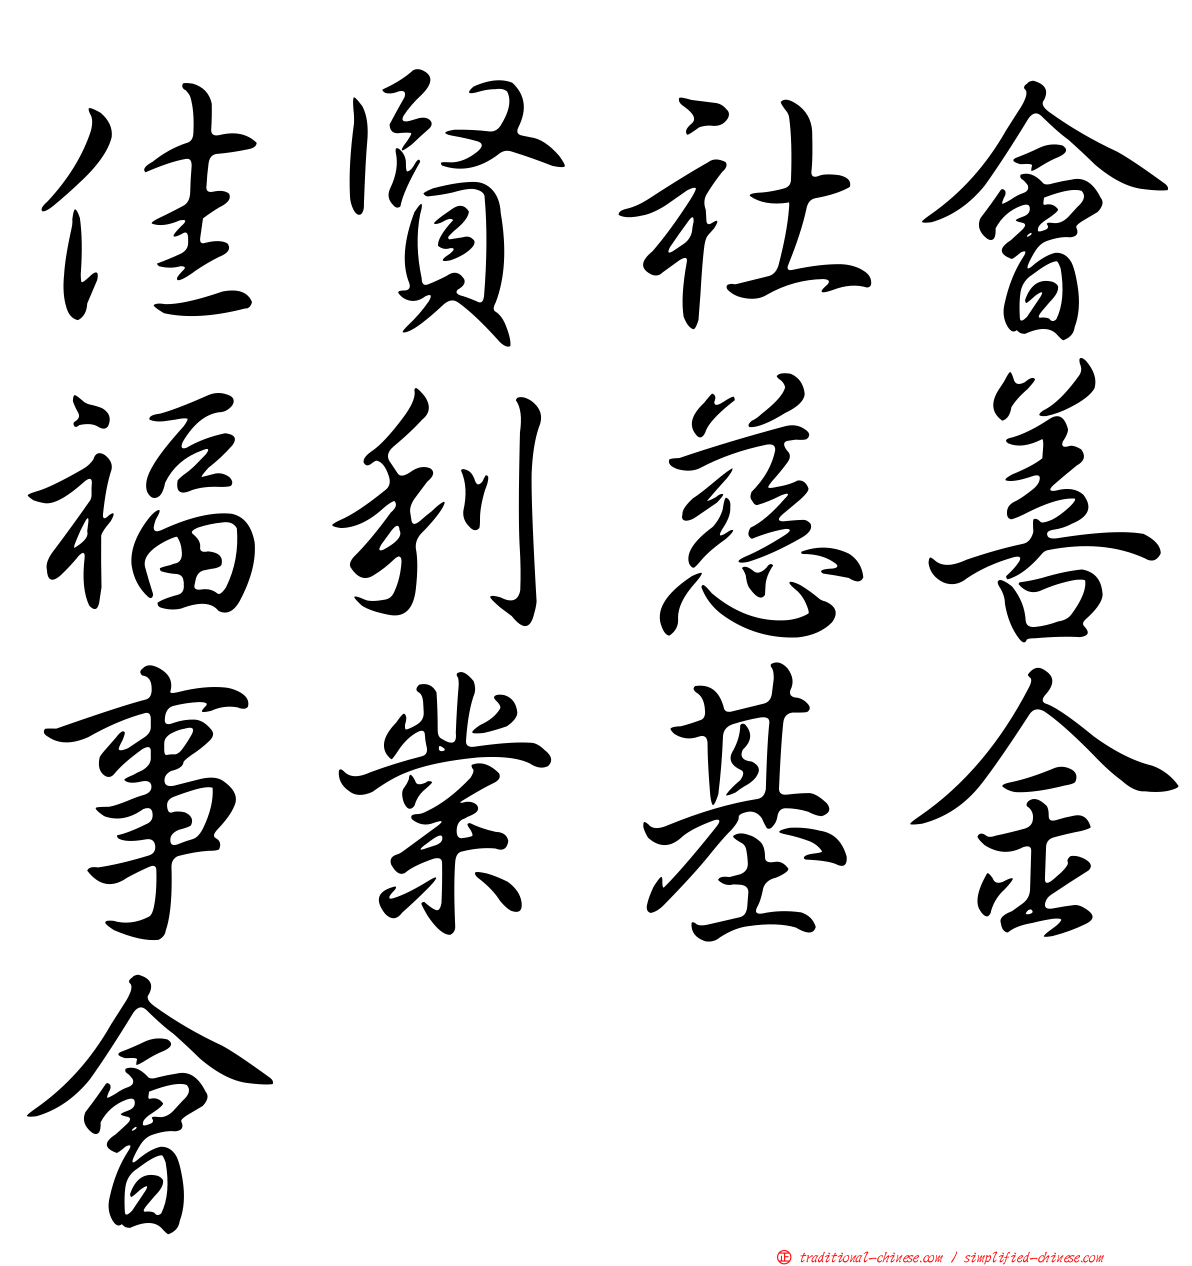 佳賢社會
福利慈善
事業基金
會
正 traditional-chinese.com / simplified-chinese.com